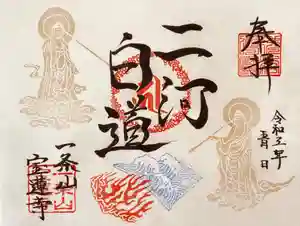 奉拝
令和五年
二河
白道
一条山
宝蓮寺